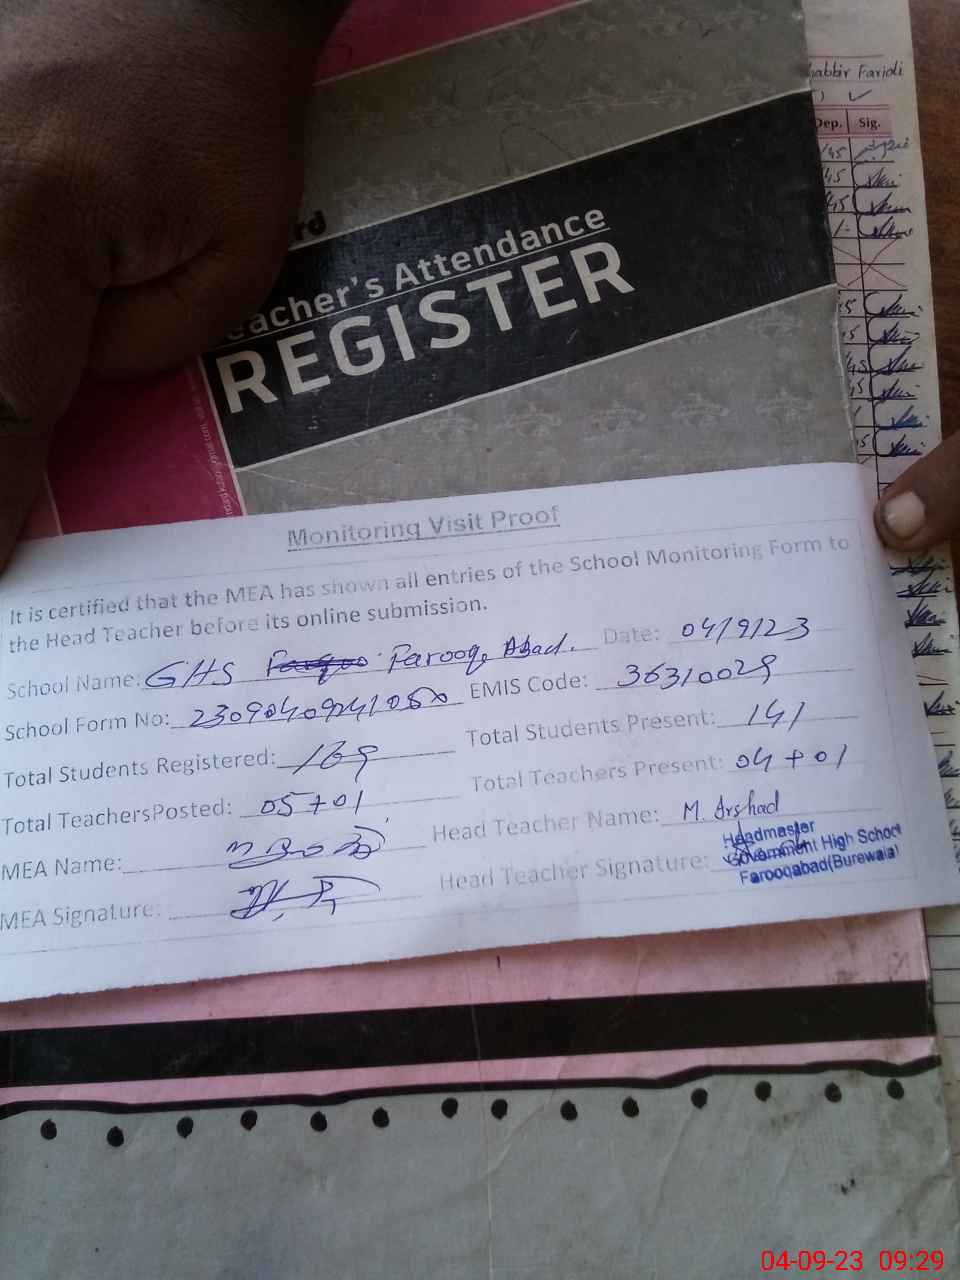 habbir Faridi
Dep. Sig.
rd
eacher's Attendance
REGISTER
Monitoring Visit Proof
It is certified that the MEA has shown all entries of the School Monitoring Form to
the Head Teacher before its online submission.
School Name: GHS Farooq Abad. Date: 04/9/23
School Form No: EMIS Code: 36310029
Total Students Registered: 169 Total Students Present: 141
Total TeachersPosted: 05+01 Total Teachers Present: 04+01
MEA Name: Head Teacher Name: M. Arshad
MEA Signature: Head Teacher Signature:
Headmaster
Government High School
Farooqabad(Burewala)
04-09-23 09:29